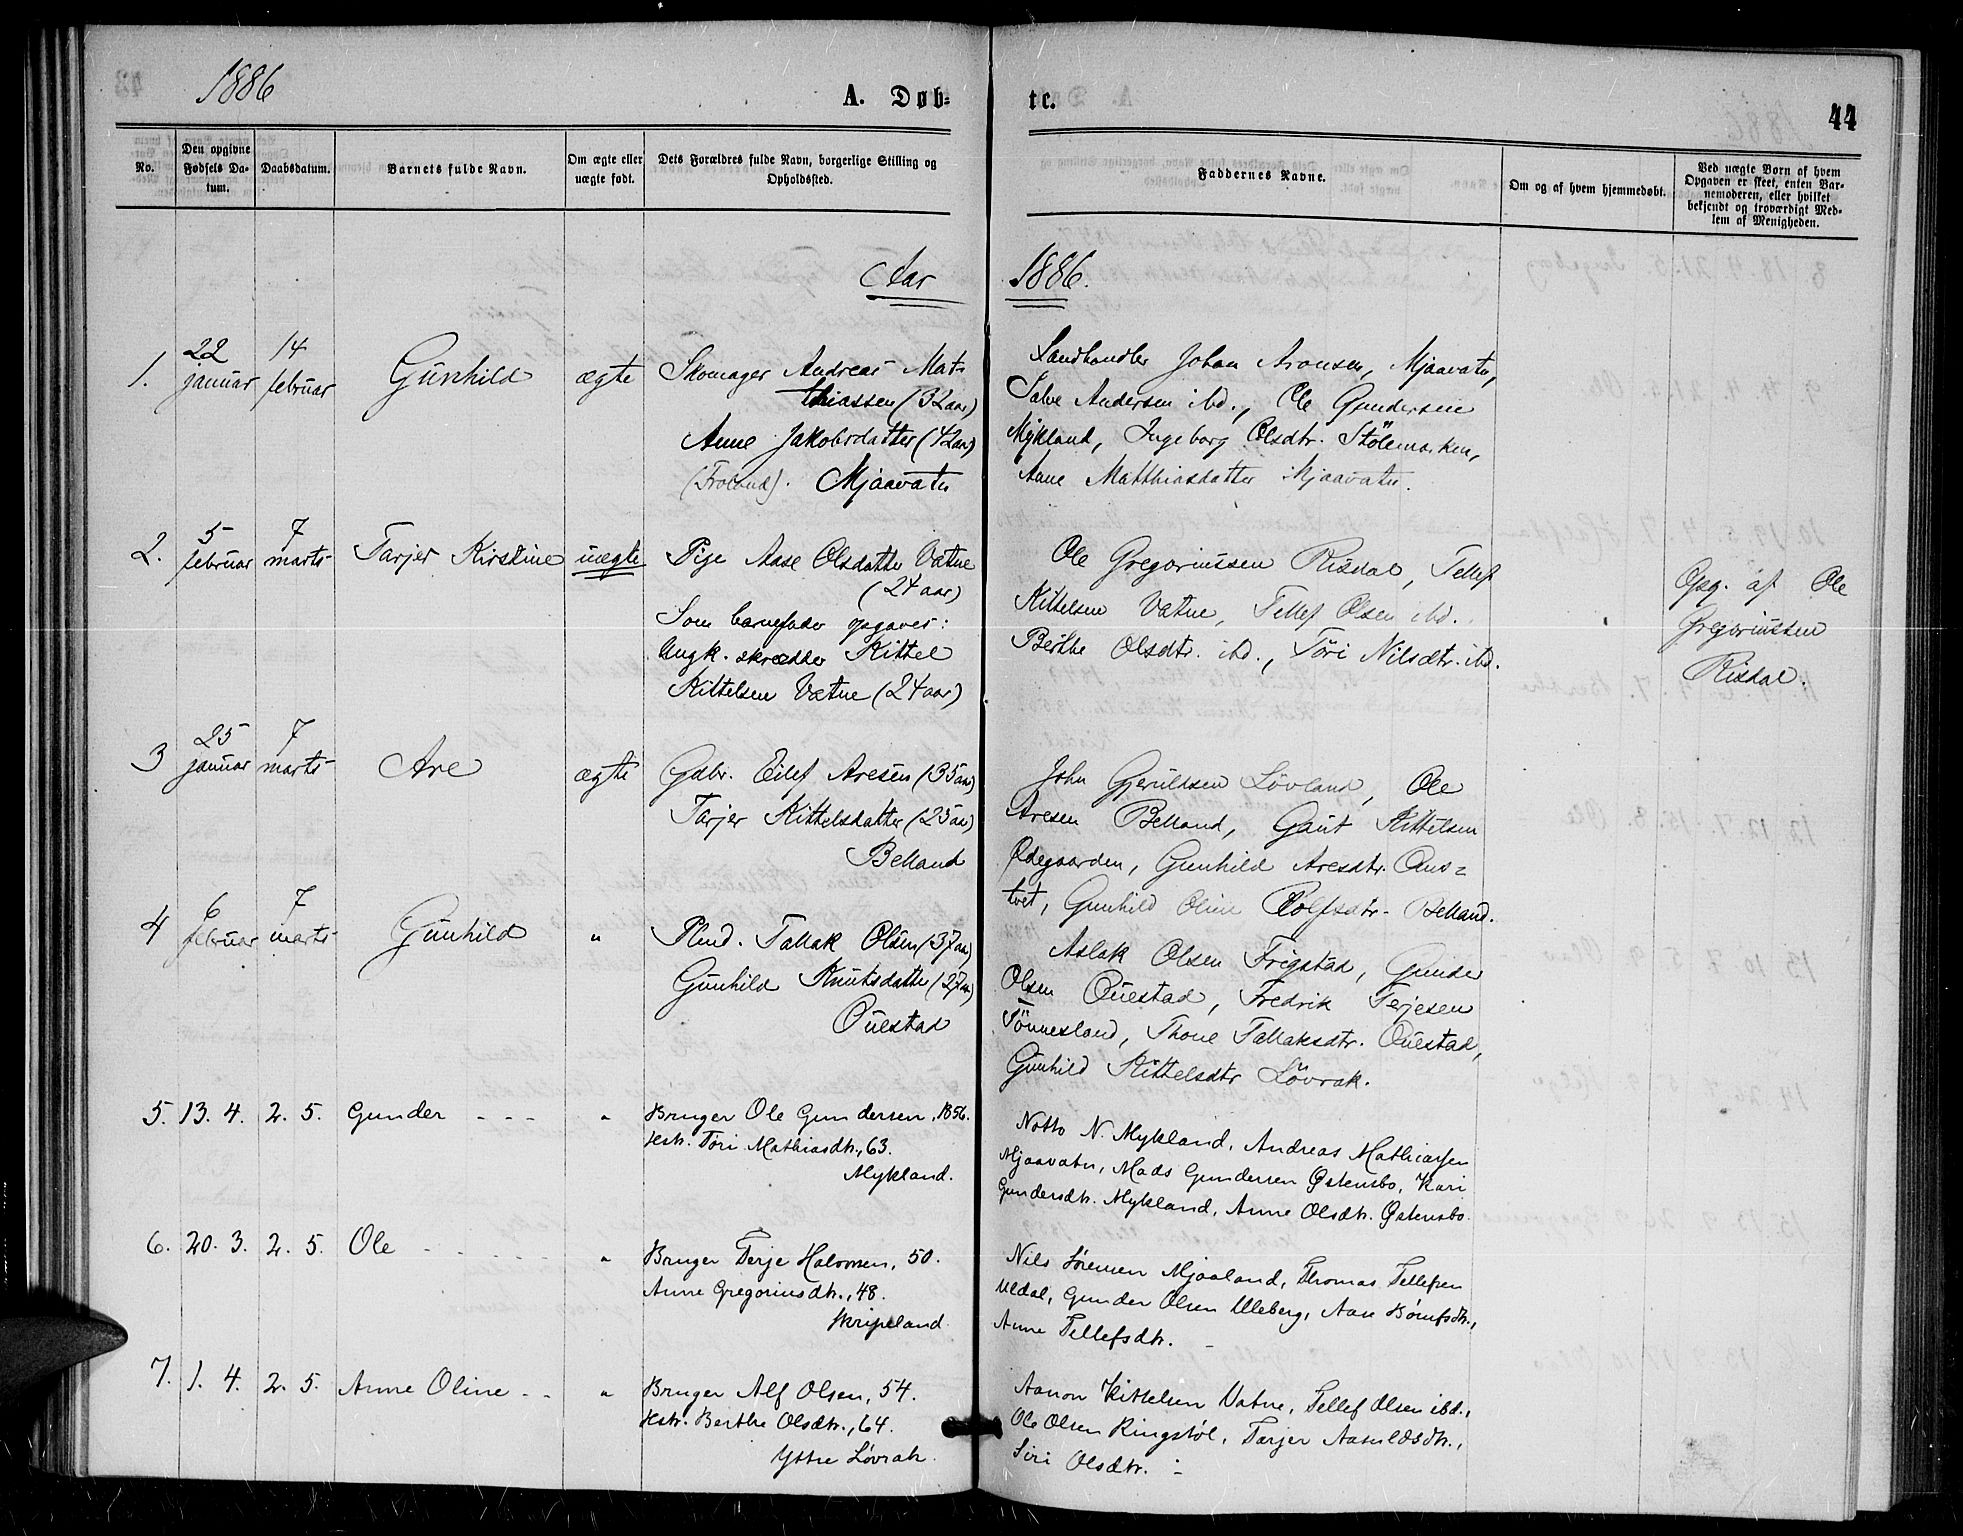 1886
A. Døb=
tc.
44
No.
Den opgivne Fødsels Datum.
Daabsdatum.
Barnets fulde Navn.
Om ægte eller uægte født.
Dets Forældres fulde Navn, borgerlige Stilling og Opholdssted.
Faddernes Navne.
Om og af hvem hjemmedøbt.
Ved uægte Børn af hvem Opgaven er skeet, enten Barnemoderen, eller hvilket bekjendt og troværdigt Medlem af Menigheden.
Aar 1886.
1. 22 januar 14 februar Gunhild ægte
Skomager Andreas Mat-
thiassen (32 aar)
Anne Jakobsdatter (42 aar)
(Froland). Mjaavatn
Landhandler Johan Aronsen, Mjaavatn,
Salve Andersen ibd., Ole Gundersen
Mykland, Ingeborg Olsdtr. Stölemarken,
Anne Matthiasdatter Mjaavatn.
2. 5 februar 7 marts Tarjer Kirstine uægte
Pige Aase Olsdatter Vatne
(24 aar)
Som barnefader opgaves:
Ungk. skrædder Kittel
Kittelsen Vatne (24 aar)
Ole Gregoriussen Risdal, Tellef
Kittelsen Vatne, Tellef Olsen ibd.
Berthe Olsdtr. ibd., Töri Nilsdtr. ibd.
Opg. af Ole
Gregoriussen
Risdal.
3 25 januar 7 marts Are ægte
Gdbr. Eilef Aresen (35 aar)
Tarjer Kittelsdatter (25 aar)
Belland
John Gjeruldsen Lövland, Ole
Aresen Belland, Gaut Kittelsen
Ødegaarden, Gunhild Aresdtr. Aus=
tvet, Gunhild Oline Rolfsdtr. Belland.
4 6 februar 7 marts Gunhild "
Plmd. Tallak Olsen (37 aar)
Gunhild Knutsdatter (27 aar)
Ouestad
Aslak Olsen Frigstad, Gunder
Olsen Ouestad, Fredrik Terjesen
Tönnesland, Thone Tallaksdtr. Ouestad,
Gunhild Kittelsdtr Lövrak.
5. 13. 4. 2. 5. Gunder - - - "
Bruger Ole Gundersen, 1856.
Hstr. Tøri Mathiasdtr., 63.
Mykland.
Notto N. Mykland, Andreas Mathiassen
Mjaavatn, Mads Gundersen Østensbo, Kari
Gundersdtr. Mykland, Anne Olsdtr. Østensbo.
6. 20. 3. 2. 5. Ole - - - - - "
Bruger Terje Halvorsen, 50.
Anne Gregoriusdtr., 48.
Skripeland.
Nils Sørensen Mjaaland, Thomas Tellefsen
Uldal, Gunder Olsen Uleberg, Aase
Anne Tellefsdtr. -
7. 1. 4. 2. 5. Anne Oline - - "
Bruger Alf Olsen, 54.
Hstr. Berthe Olsdtr., 64.
Yttre Løvrak.
Aanon Kittelsen Vatne, Tellef Olsen ibd.,
Ole Olsen Ringstøl, Tarjer Aasuldsdtr.,
Siri Olsdtr. -